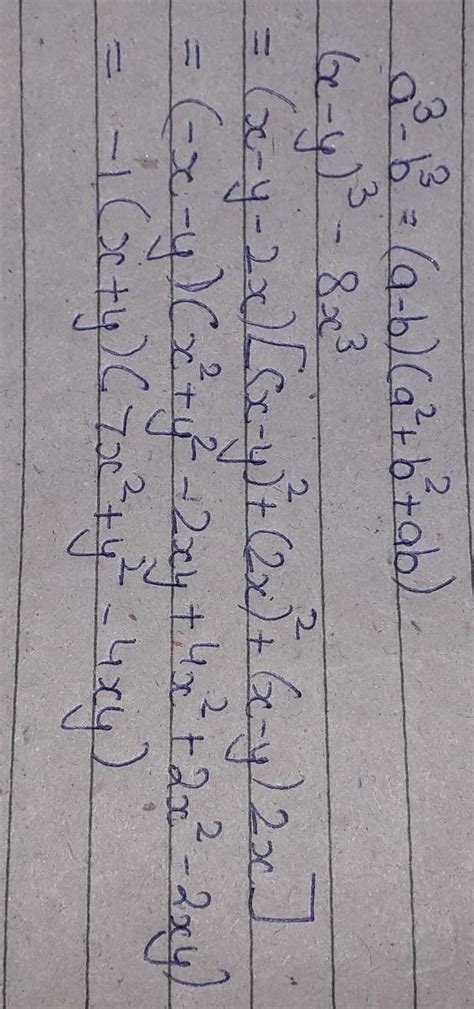 a³-b³ = (a-b)(a²+b²+ab)
(x-y)³ - 8x³
= (x-y-2x)[(x-y)²+(2x)²+(x-y)2x]
= (-x-y)(x²+y²-2xy+4x²+2x²-2xy)
= -1(x+y)(7x²+y²-4xy)